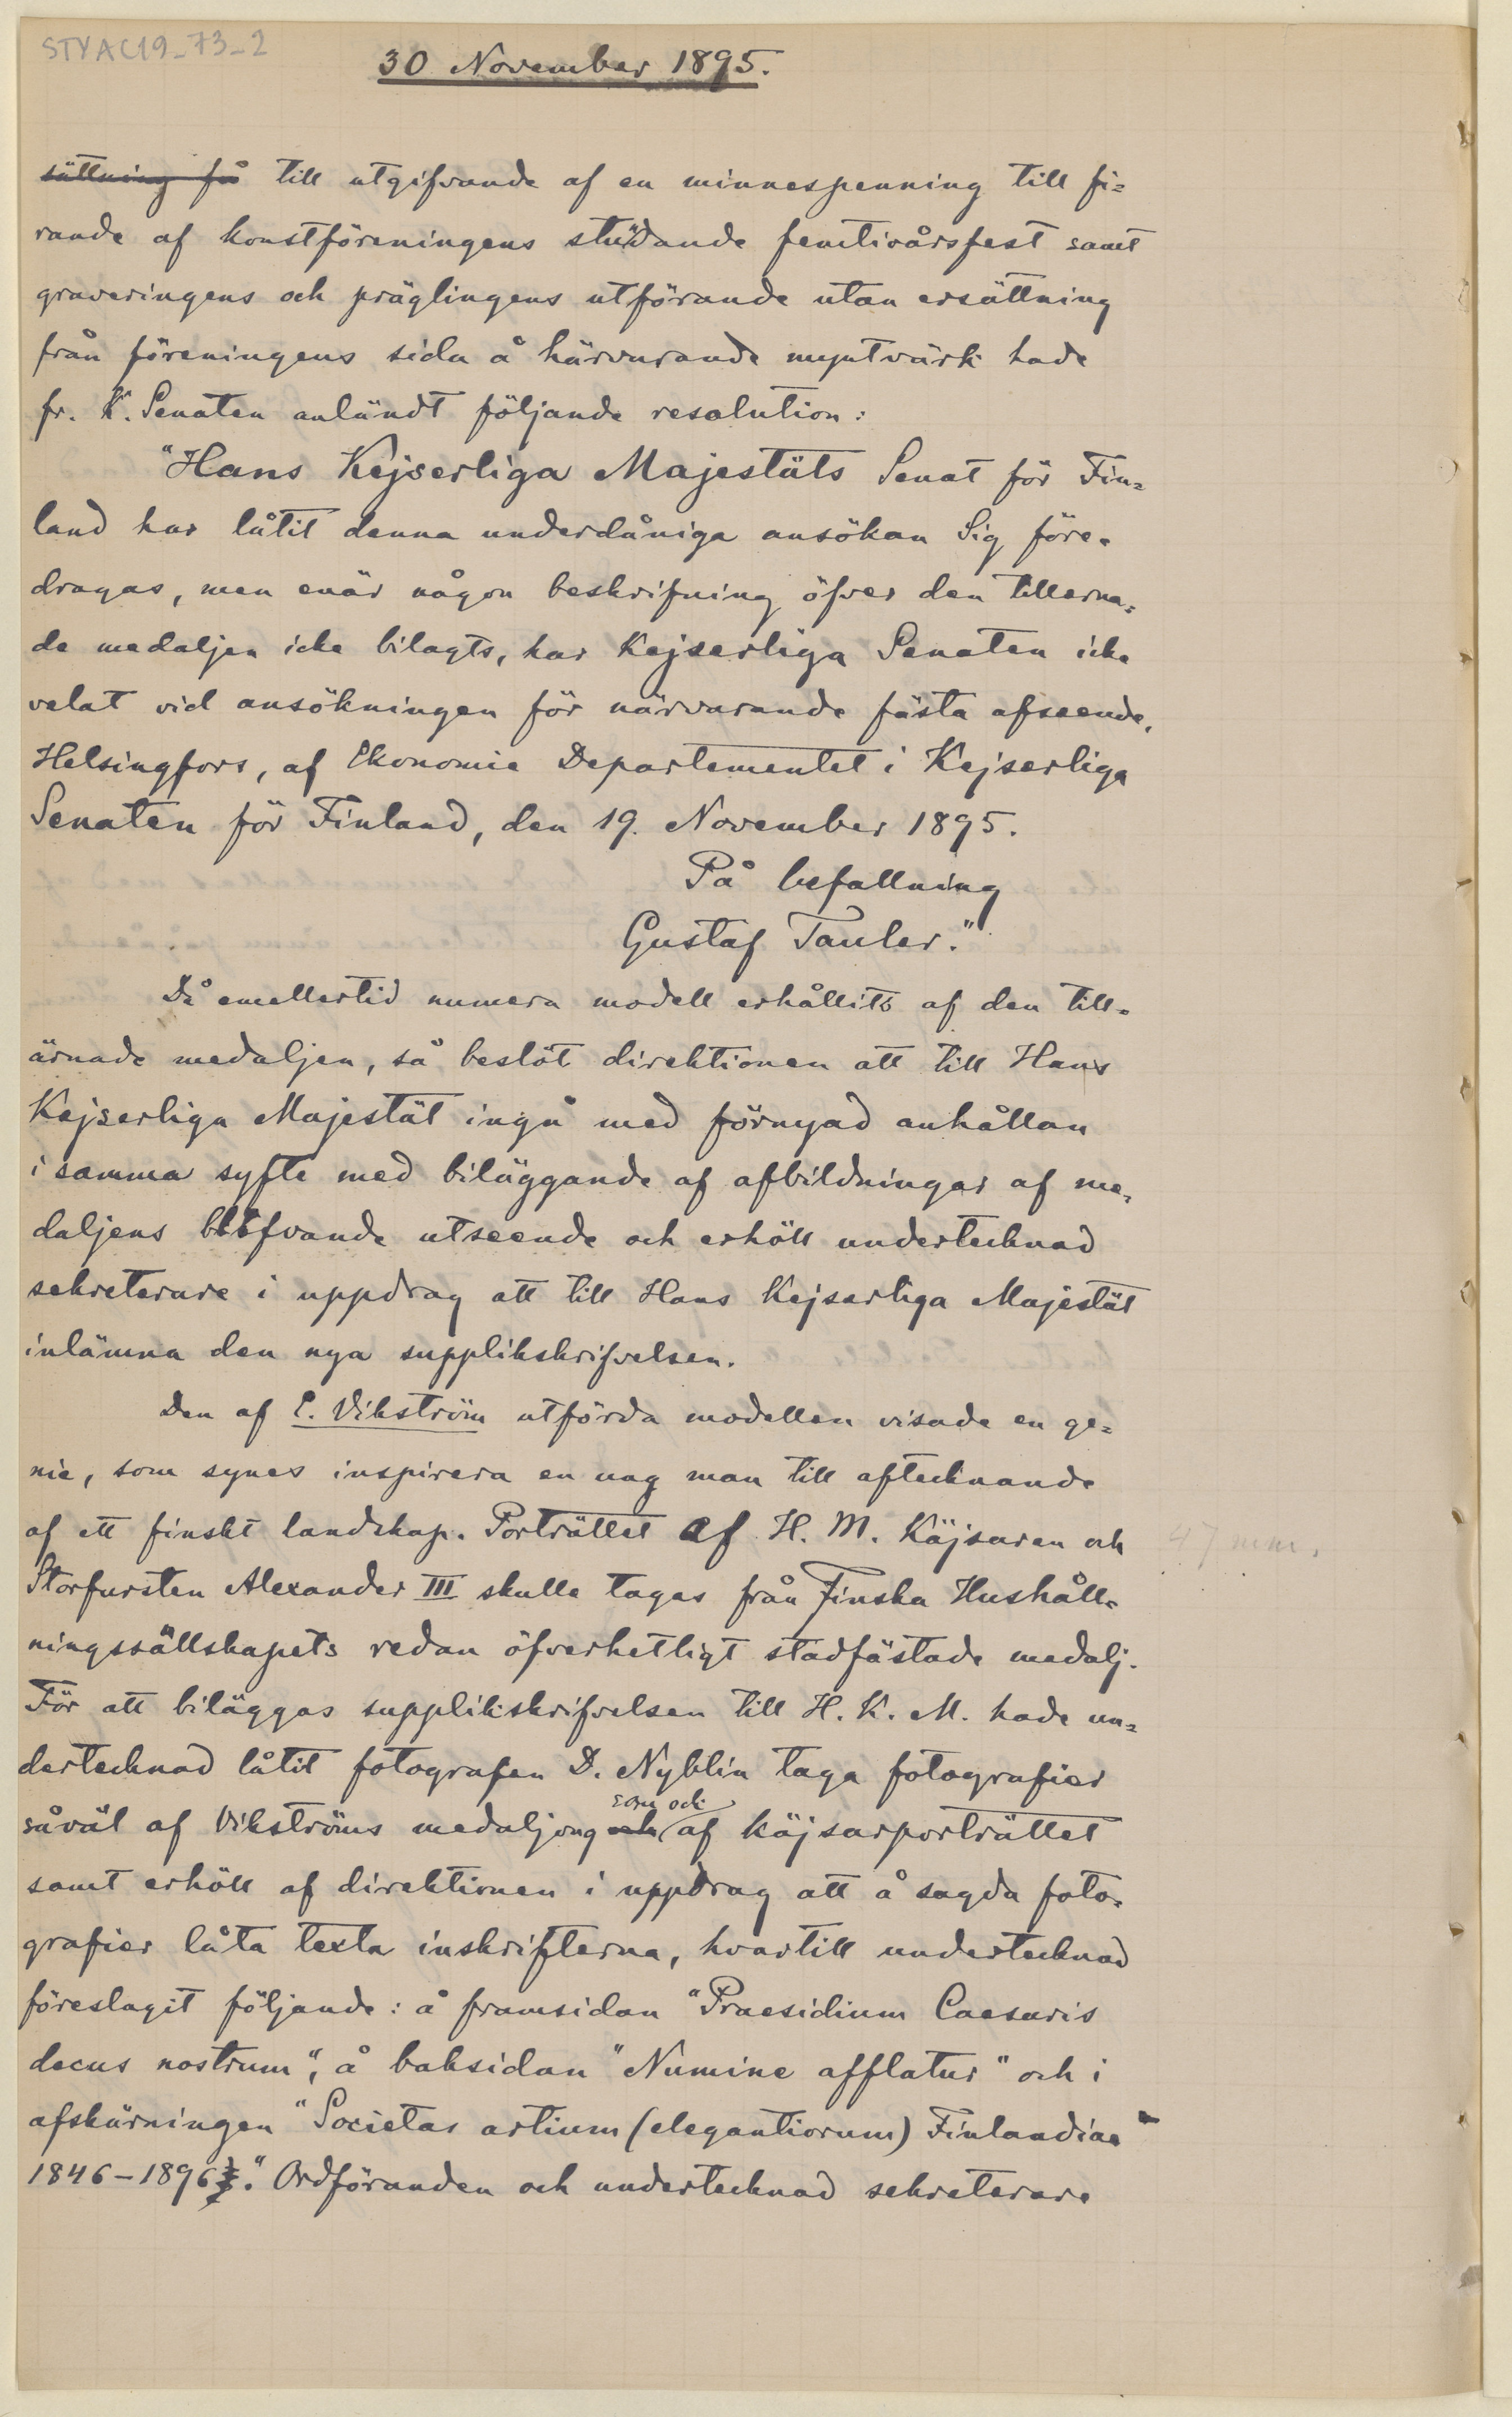 STYAC19_73_2
30 November 1895.
sättning få till utgifvande af en minnespenning till fi=
rande af konstföreningens stundande femtioårsfest samt
graveringens och präglingens utförande utan ersättning
från föreningens sida å härvarande myntvärk hade
fr. K. Senaten anländt följande resolution:
"Hans Kejserliga Majestäts Senat för Fin=
land har låtit denna underdåniga ansökan Sig före=
dragas, men enär någon beskrifning öfver den tillerna=
de medaljen icke bilagts, har Kejserliga Senaten icke
velat vid ansökningen för närvarande fästa afseende.
Helsingfors, af Ekonomie Departementet i Kejserliga
Senaten för Finland, den 19. November 1895.
På befallning
Gustaf Tauler."
Då emellertid numera modell erhållits af den till=
ärnade medaljen, så beslöt direktionen att till Hans
Kejserliga Majestät ingå med förnyad anhållan
i samma syfte med biläggande af afbildningar af me=
daljens blifvande utseende och erhöll undertecknad
sekreterare i uppdrag att till Hans Kejserliga Majestät
inlämna den nya supplikskrifvelsen.
Den af E. Vikström utförda modellen visade en ge=
nie, som synes inspirera en ung man till aftecknande
af ett finskt landskap. Porträttet af H. M. Käjsaren och
47 mm.
Storfursten Alexander III skulle tagas från Finska Hushåll=
ningssällskapets redan öfverhetligt stadfästade medalj.
För att biläggas supplikskrifvelsen till H. K. M. hade un=
dertecknad låtit fotografen D. Nyblin taga fotografier
som och
såväl af Vikströms medaljong och af käjsarporträttet
samt erhöll af direktionen i uppdrag att å sagda foto=
grafier låta texta inskrifterna, hvartill undertecknad
föreslagit följande: å framsidan "Praesidium Caesaris
decus nostrum", å baksidan "Numine afflatur" och i
afskärningen "Societas artium (elegantiorum) Finlandiae
1846-1896." Ordföranden och undertecknad sekreterare